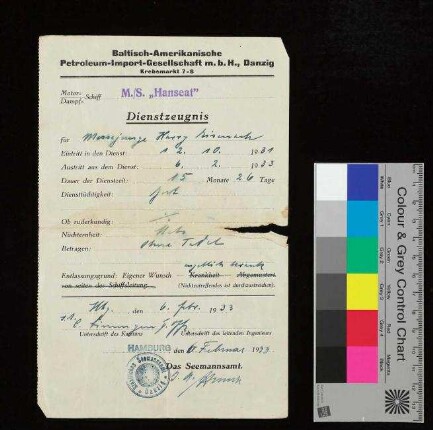 Baltisch-Amerikanische
Petroleum-Import-Gesellschaft m. b. H., Danzig
Krebsmarkt 7-8
Motor-
Dampf- Schiff M./S. „Hanseat"
Dienstzeugnis
für Messejunge Harry
Eintritt in den Dienst: 12. 10. 1931
Austritt aus dem Dienst: 6. 2. 1933
Dauer der Dienstzeit: 15 Monate 26 Tage
Diensttüchtigkeit: gut
Ob zuderkundig:
Nüchternheit: stets
Betragen: ohne Tadel
Entlassungsgrund: Eigener Wunsch Krankheit Abgemustert
von seiten der Schiffsleitung. (Nichtzutreffendes ist durchzustreichen).
Hbg., den 6. Febr. 1933
Unterschrift des Kapitäns Unterschrift des leitenden Ingenieurs
HAMBURG, den 6. Februar 1933.
Das Seemannsamt.
Colour & Grey Control Chart
White
Grey 1
Grey 2
Grey 3
Grey 4
Black
Blue
Cyan
Green
Yellow
Red
Magenta